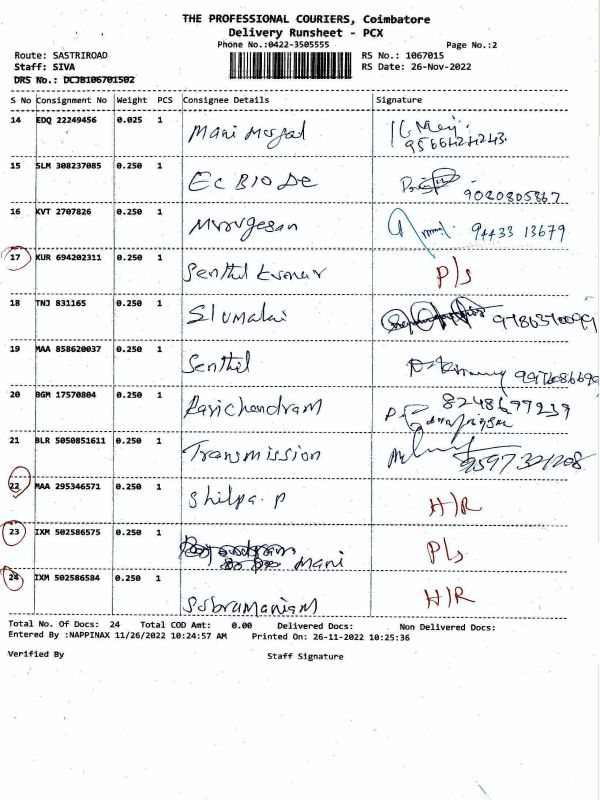 THE PROFESSIONAL COURIERS, Coimbatore
Delivery Runsheet - PCX
Phone No.:0422-3505555 Page No.:2
Route: SASTRIROAD RS No.: 1067015
Staff: SIVA RS Date: 26-Nov-2022
DRS No.: DCJB106701502
S No Consignment No Weight PCS Consignee Details Signature
14 EDQ 22249456 0.025 1 Mani
15 SLM 308237085 0.250 1 EC BIO De 9020805867
16 KVT 2707826 0.250 1 Murugesan 94433 13679
17 KUR 694202311 0.250 1 Senthil kumar P/s
18 TNJ 831165 0.250 1 Slumalai
19 MAA 858620037 0.250 1 Senthil
20 BGM 17570804 0.250 1 Ravichandram 8248677239
21 BLR 5050851611 0.250 1 Transmission
22 MAA 295346571 0.250 1 Shilpa. P H/R
23 IXM 502586575 0.250 1 Mani P/s
24 IXM 502586584 0.250 1 Subramaniam H/R
Total No. Of Docs: 24 Total COD Amt: 0.00 Delivered Docs: Non Delivered Docs:
Entered By :NAPPINAX 11/26/2022 10:24:57 AM Printed On: 26-11-2022 10:25:36
Verified By Staff Signature